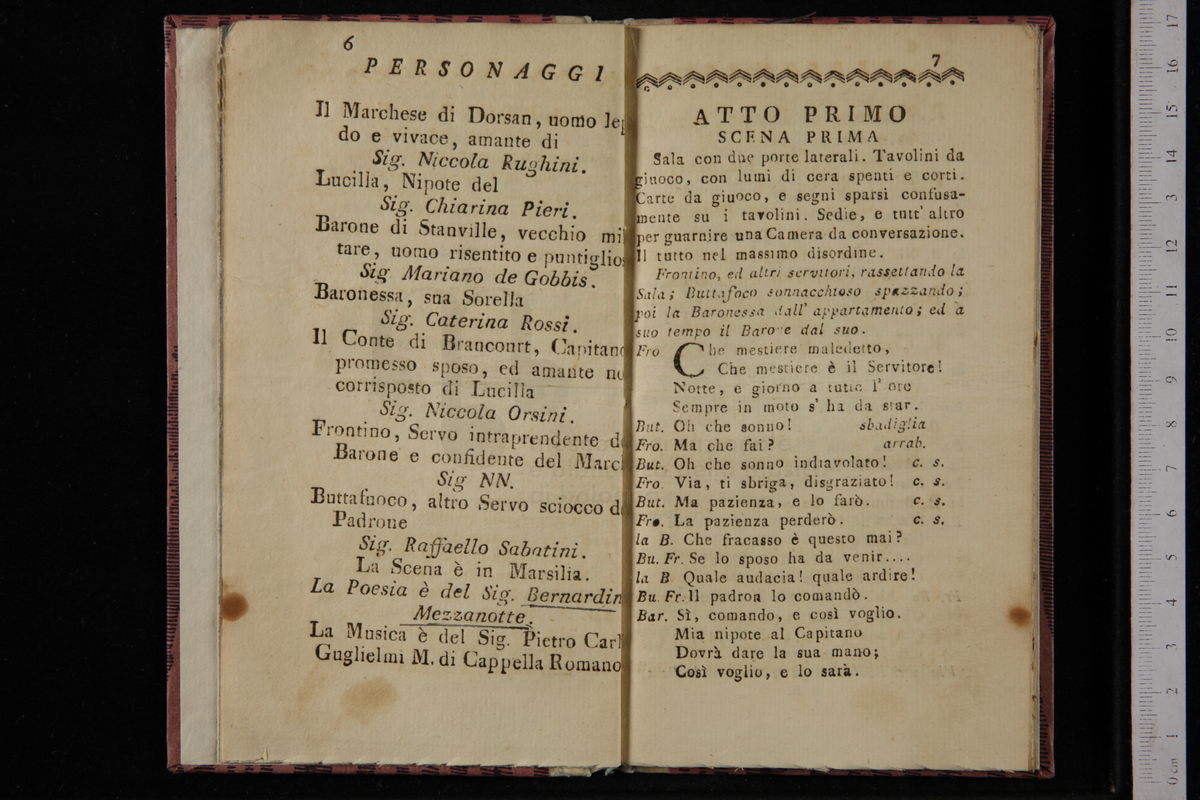 6
PERSONAGGI
Il Marchese di Dorsan, uomo lep
do e vivace, amante di
Sig. Niccola Rughini.
Lucilla, Nipote del
Sig. Chiarina Pieri.
Barone di Stanville, vecchio mil
tare, uomo risentito e puntiglios
Sig Mariano de Gobbis.
Baronessa, sua Sorella
Sig. Caterina Rossi.
Il Conte di Brancourt, Capitano
promesso sposo, ed amante no
corrisposto di Lucilla
Sig. Niccola Orsini.
Frontino, Servo intraprendente d
Barone e confidente del Marc
Sig NN.
Buttafuoco, altro Servo sciocco d
Padrone
Sig. Raffaello Sabatini.
La Scena è in Marsilia.
La Poesia è del Sig. Bernardin
Mezzanotte.
La Musica è del Sig. Pietro Carl
Guglielmi M. di Cappella Romano
7
ATTO PRIMO
SCENA PRIMA
Sala con due porte laterali. Tavolini da
giuoco, con lumi di cera spenti e corti.
Carte da giuoco, e segni sparsi confusa-
mente su i tavolini. Sedie, e tutt' altro
per guarnire una Camera da conversazione.
Il tutto nel massimo disordine.
Frontino, ed altri servitori, rassettando la
Sala; Buttafoco sonnacchioso spazzando;
poi la Baronessa dall' appartamento; ed a
suo tempo il Barone dal suo.
Fro Che mestiere maledetto,
Che mestiere è il Servitore!
Notte, e giorno a tutte l' ore
Sempre in moto s' ha da star.
But. Oh che sonno! sbadiglia
Fro. Ma che fai? arrab.
But. Oh che sonno indiavolato! c. s.
Fro. Via, ti sbriga, disgraziato! c. s.
But. Ma pazienza, e lo farò. c. s.
Fro. La pazienza perderò. c. s.
la B. Che fracasso è questo mai?
Bu. Fr. Se lo sposo ha da venir....
la B Quale audacia! quale ardire!
Bu. Fr. Il padron lo comandò.
Bar. Sì, comando, e così voglio.
Mia nipote al Capitano
Dovrà dare la sua mano;
Così voglio, e lo sarà.
0 cm 1 2 3 4 5 6 7 8 9 10 11 12 13 14 15 16 17